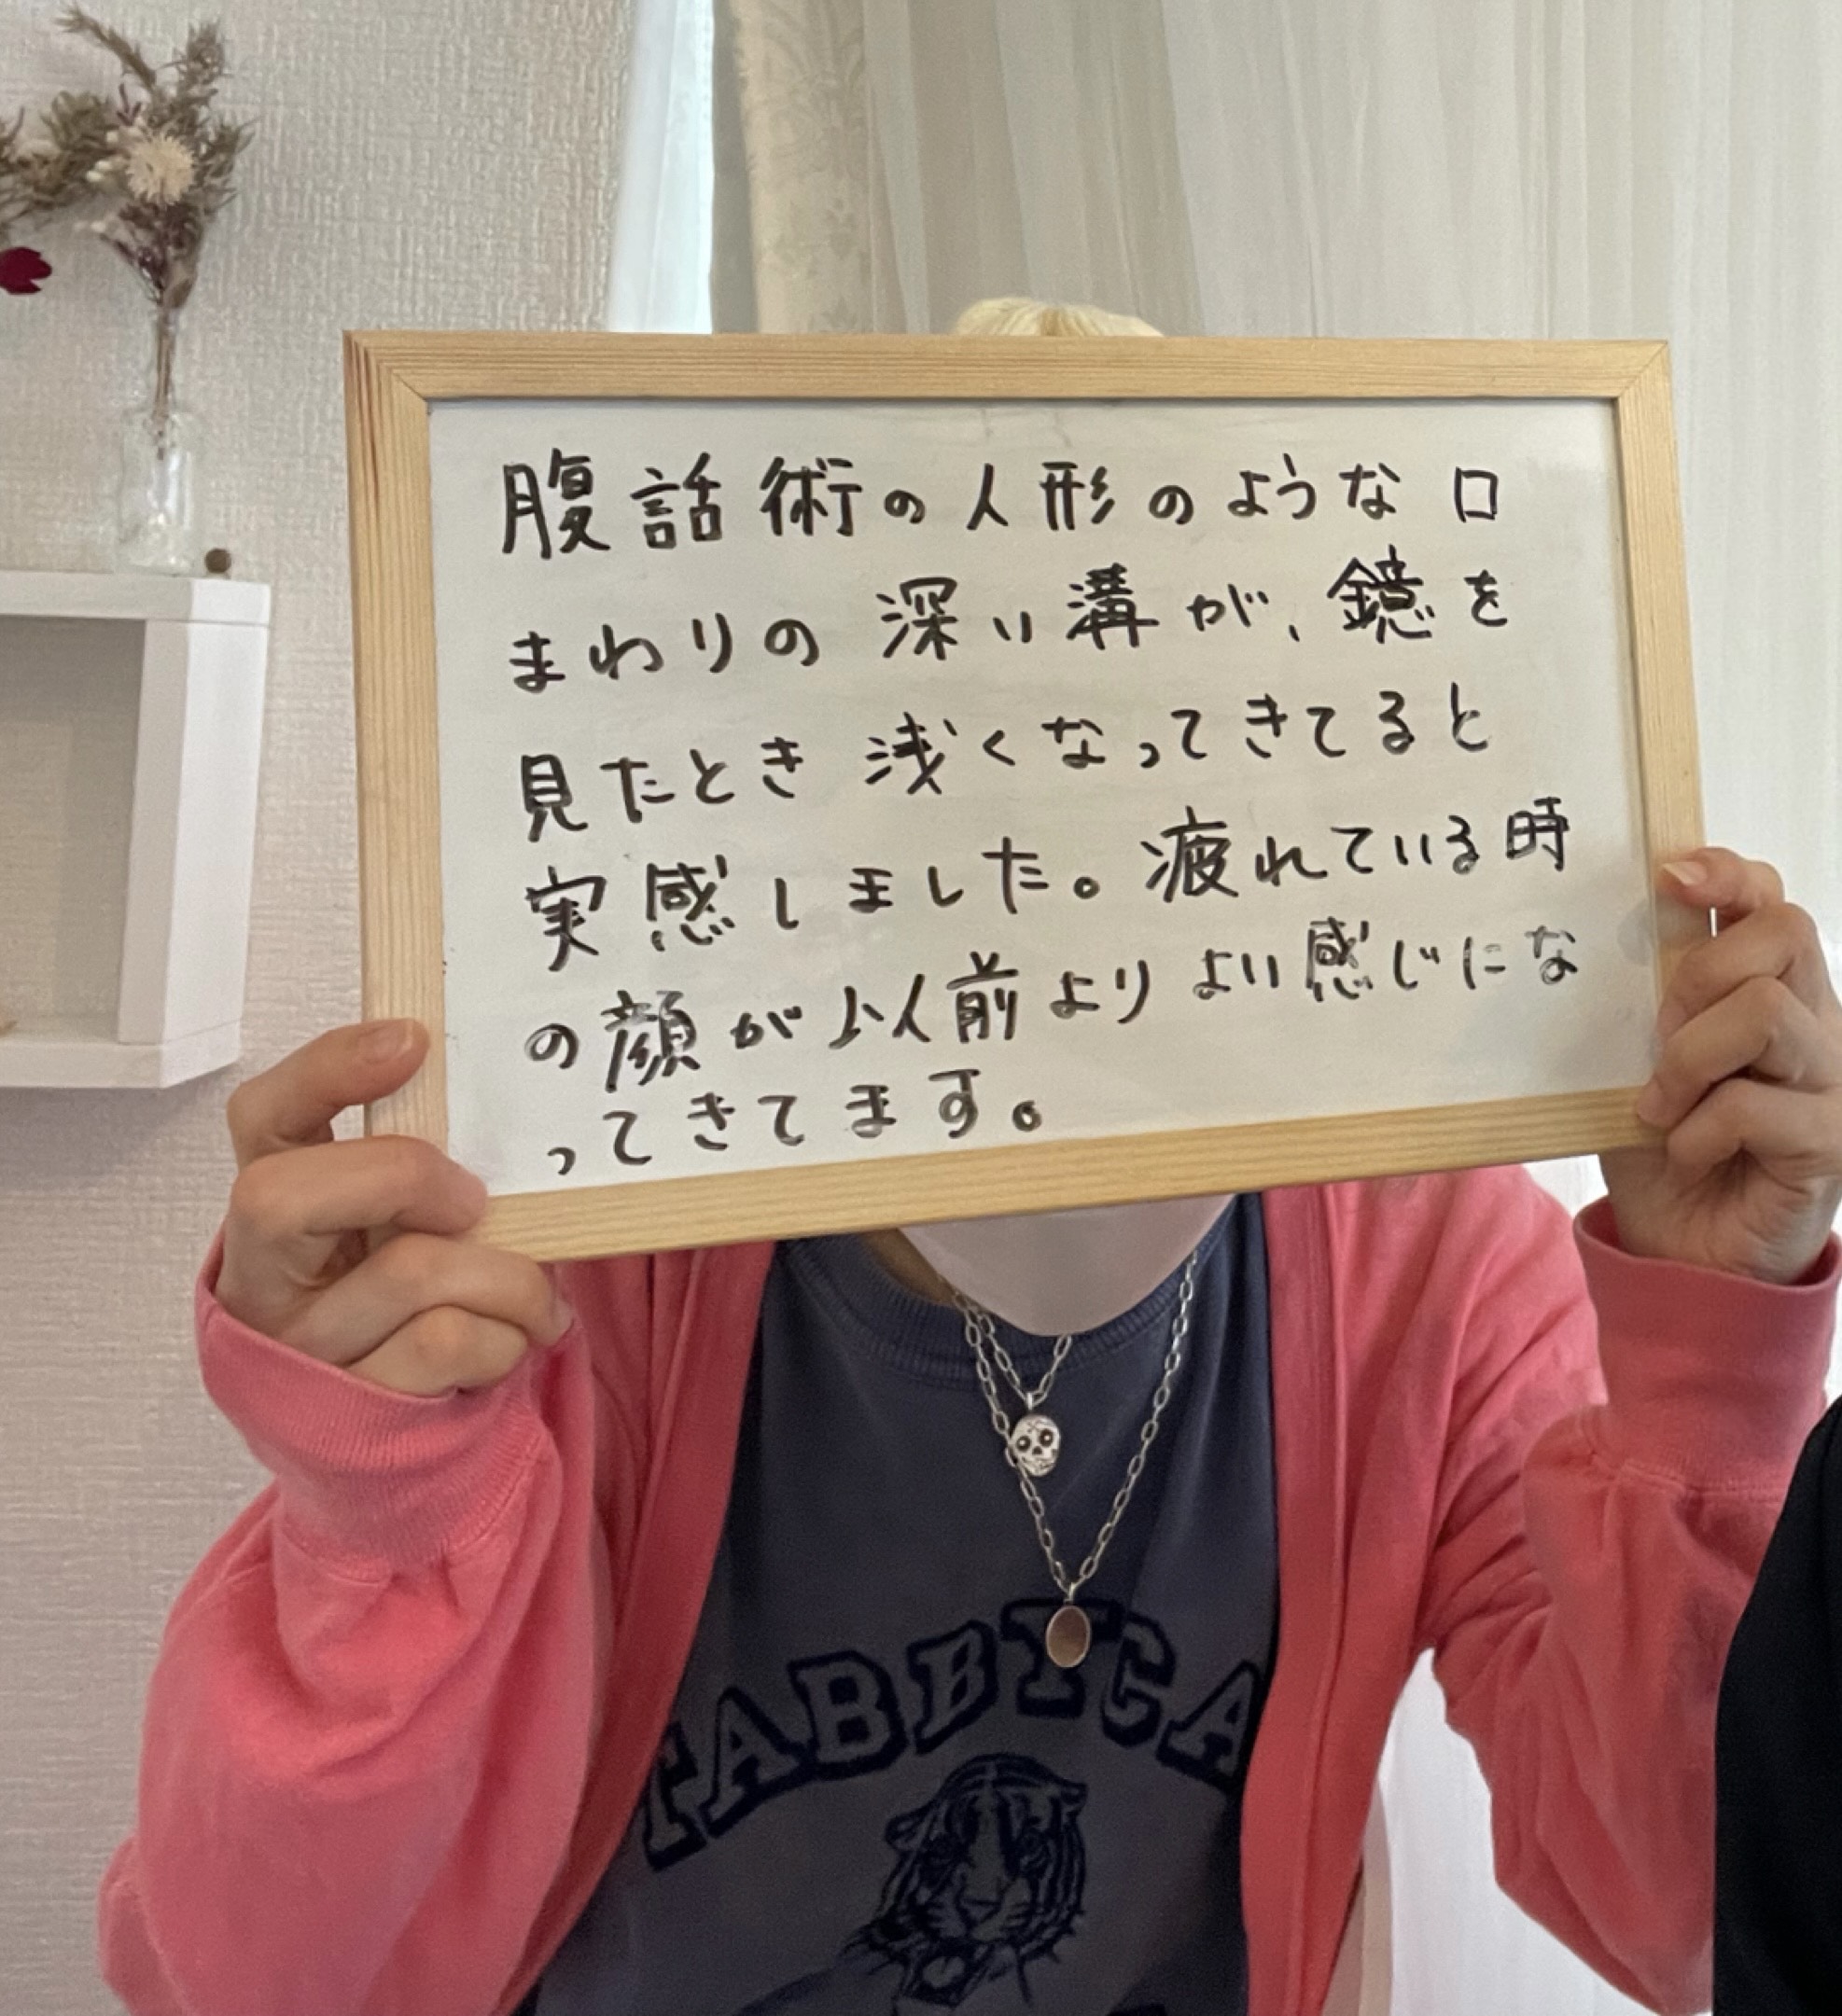 腹話術の人形のような口
まわりの深い溝が、鏡を
見たとき浅くなってきてると
実感しました。疲れている時
の顔が以前よりよい感じにな
ってきてます。
TABBYCA